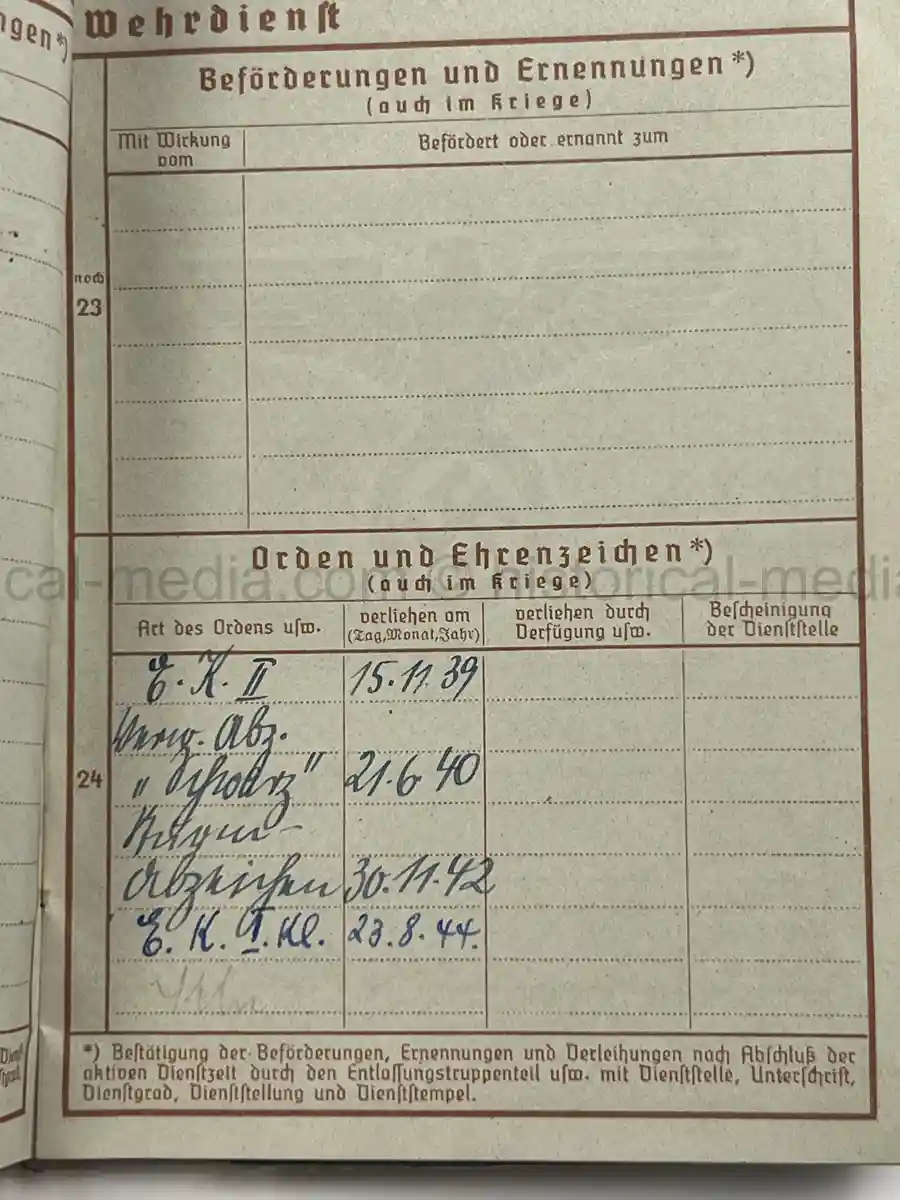 ngen*)
Wehrdienst
Beförderungen und Ernennungen*)
(auch im Kriege)
Mit Wirkung vom
Befördert oder ernannt zum
noch
23
Orden und Ehrenzeichen*)
(auch im Kriege)
cal-media.com historical-media
Art des Ordens usw.
verliehen am (Tag, Monat, Jahr)
verliehen durch Verfügung usw.
Bescheinigung der Dienststelle
24
E. K. II 15.11.39
Verw. Abz.
"Schwarz" 21.6 40
Sturm-
Abzeichen 30.11.42
E. K. I. Kl. 23.8.44.
*) Bestätigung der Beförderungen, Ernennungen und Verleihungen nach Abschluß der
aktiven Dienstzeit durch den Entlassungstruppenteil usw. mit Dienststelle, Unterschrift,
Dienstgrad, Dienststellung und Dienststempel.